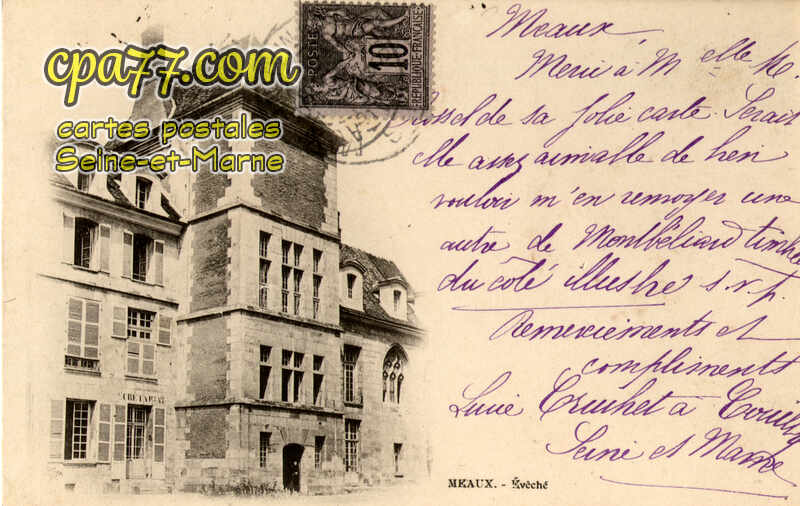 cpa77.com
cartes postales
Seine-et-Marne
POSTES
10
REPUBLIQUE FRANÇAISE
SECRETARIAT
Meaux,
Merci à Melle M.
Rossel de sa jolie carte. Serait
elle assez aimable de bien
vouloir m'en renvoyer une
autre de Montbéliard timbrée
du côté illustré s.v.p.
Remerciements et
compliments
Lucie à
Seine et Marne
MEAUX. - Évêché